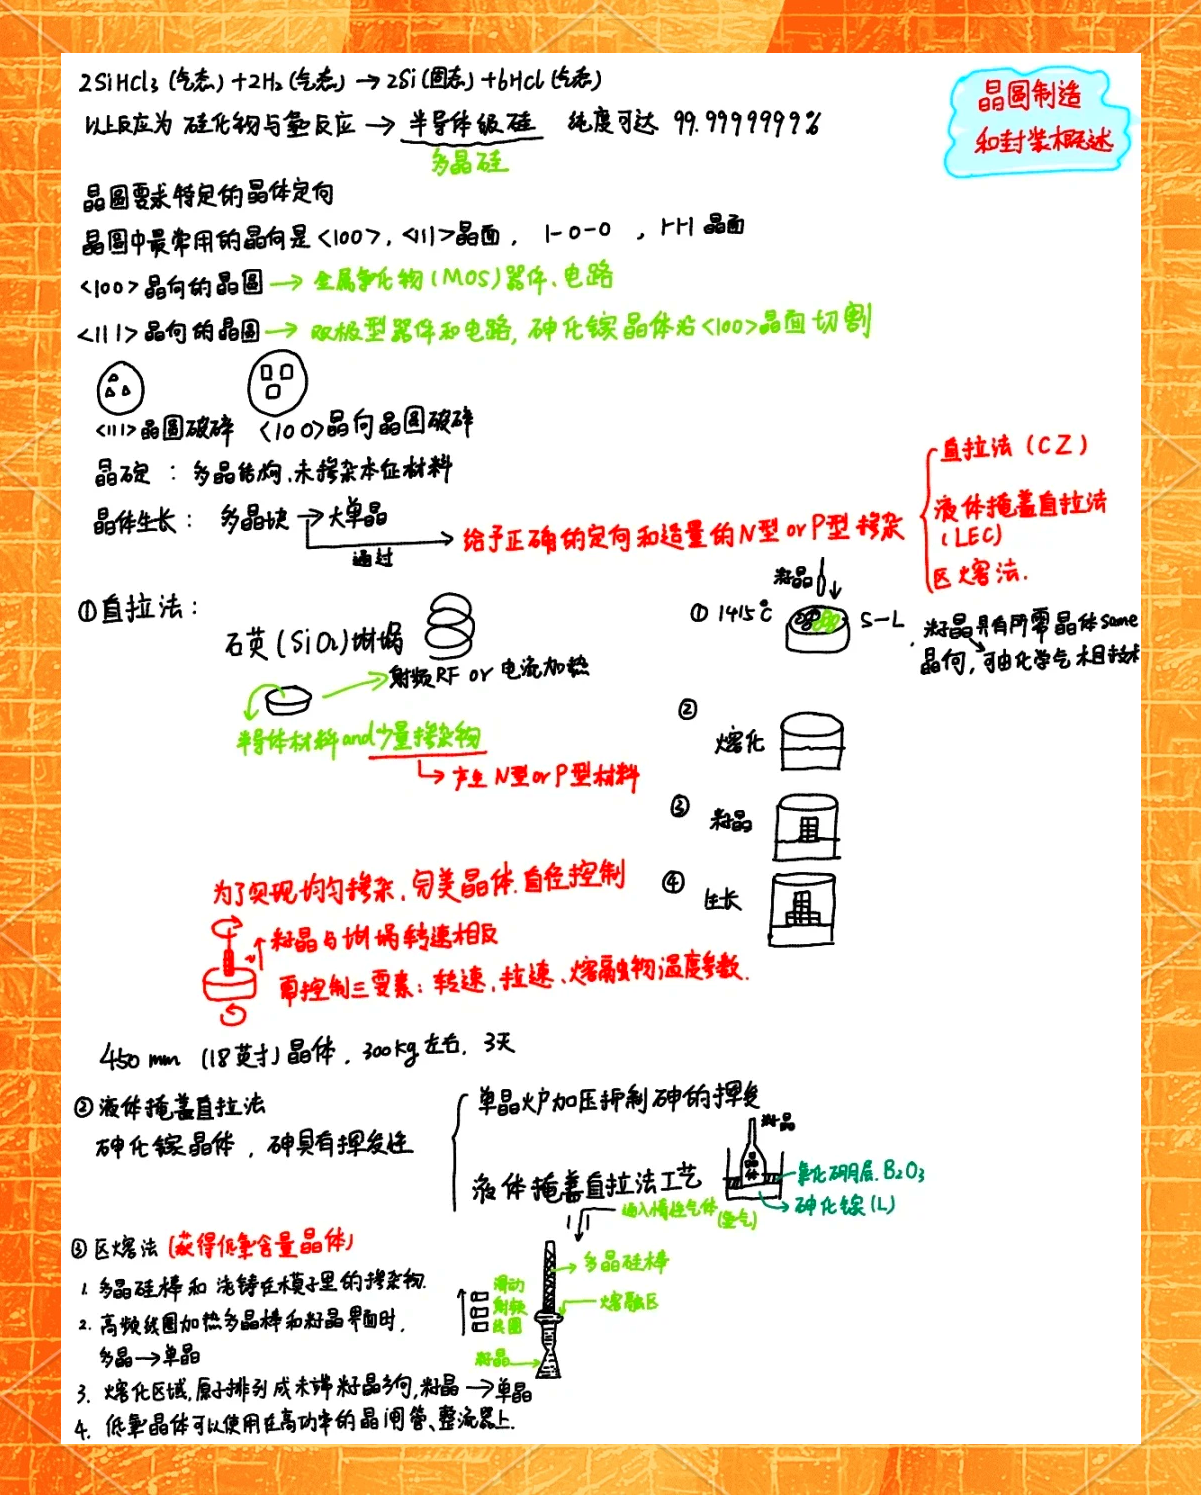 晶圆制造
和封装概述
2SiHCl₃(气态)+2H₂(气态)→2Si(固态)+6HCl(气态)
以上反应为 硅化物与氢反应 → 半导体级硅 纯度可达 99.9999999%
多晶硅
晶圆要求特定的晶体定向
晶圆中最常用的晶向是<100>,<111>晶面, 1-0-0 , 1-1-1 晶面
<100>晶向的晶圆→金属氧化物(MOS)器件、电路
<111>晶向的晶圆→双极型器件和电路,砷化镓晶体沿<100>晶面切割
<111>晶圆破碎 <100>晶向晶圆破碎
晶碇:多晶结构,未掺杂本征材料
晶体生长: 多晶块→大单晶
通过
给予正确的定向和适量的N型or P型掺杂
直拉法(CZ)
液体掩盖直拉法
(LEC)
区熔法.
①直拉法:
石英(SiO₂)坩埚
射频RF or 电流加热
半导体材料and少量掺杂物
产生N型or P型材料
籽晶
① 1415℃
S-L
籽晶具有所需晶体same
晶向,可由化学气相技术
②
熔化
③
籽晶
④
生长
为了实现均匀掺杂,完美晶体,直径控制
籽晶与坩埚转速相反
需控制三要素:转速,拉速、熔融物温度参数.
450mm (18英寸)晶体, 300kg左右, 3天
②液体掩盖直拉法
砷化镓晶体, 砷具有挥发性
单晶炉加压抑制砷的挥发
液体掩盖直拉法工艺
籽晶
晶体
氧化硼层.B₂O₃
砷化镓(L)
③区熔法(获得低氧含量晶体)
1. 多晶硅棒和浇铸在模子里的掺杂物.
2. 高频线圈加热多晶棒和籽晶界面时,
多晶→单晶
3. 熔化区域,原子排列成末端籽晶方向,籽晶→单晶
4. 低氧晶体可以使用在高功率的晶闸管、整流器上.
通入惰性气体(氩气)
多晶硅棒
熔融区
滑动
射频
线圈
籽晶